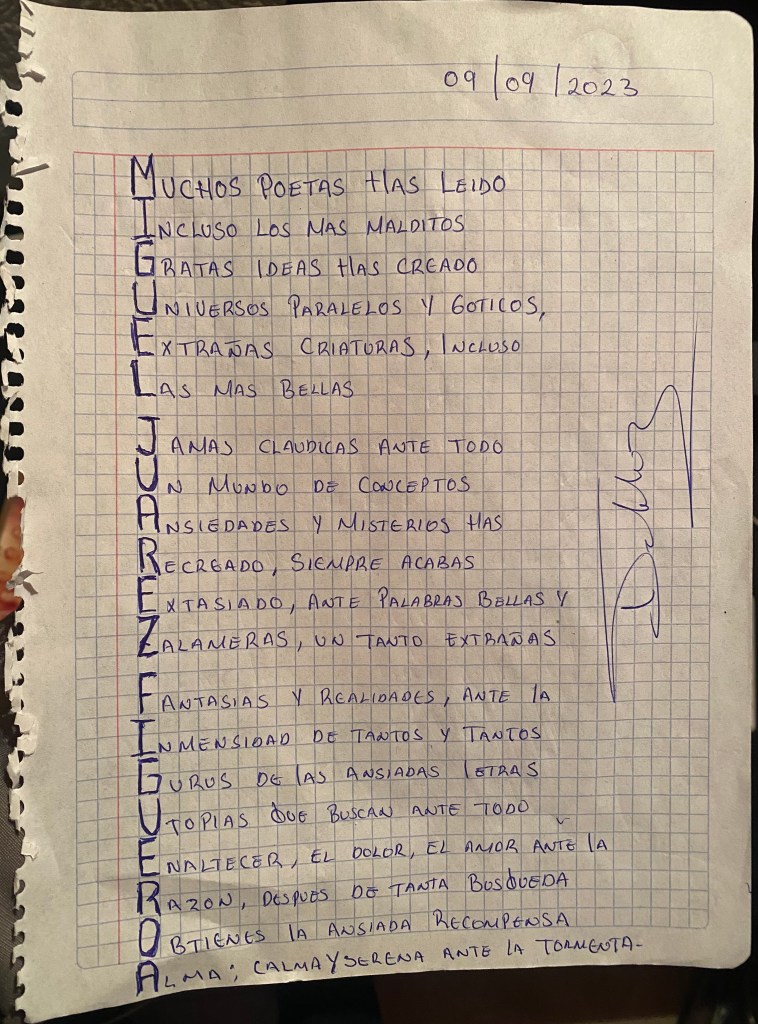 09/09/2023
MUCHOS POETAS HAS LEIDO
INCLUSO LOS MAS MALDITOS
GRATAS IDEAS HAS CREADO
UNIVERSOS PARALELOS Y GOTICOS,
EXTRAÑAS CRIATURAS, INCLUSO
LAS MAS BELLAS
JAMAS CLAUDICAS ANTE TODO
UN MUNDO DE CONCEPTOS
ANSIEDADES Y MISTERIOS HAS
RECREADO, SIEMPRE ACABAS
EXTASIADO, ANTE PALABRAS BELLAS Y
ZALAMERAS, UN TANTO EXTRAÑAS
FANTASIAS Y REALIDADES, ANTE lA
INMENSIDAD DE TANTOS Y TANTOS
GURUS DE lAS ANSIADAS lETRAS
UTOPIAS QUE BUSCAN ANTE TODO
ENALTECER, EL DOLOR, EL AMOR ANTE lA
RAZON, DESPUES DE TANTA BUSQUEDA
OBTIENES lA ANSIADA RECOMPENSA
ALMA; CALMA Y SERENA ANTE lA TORMENTA-